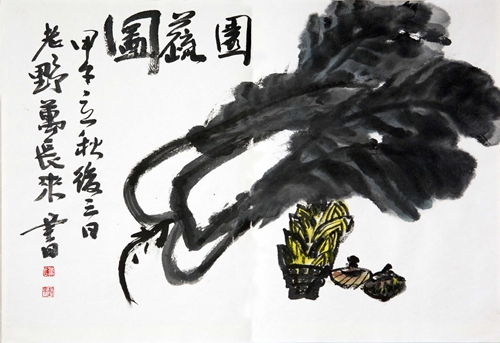 園蔬圖
甲午立秋後三日
老野萬長來